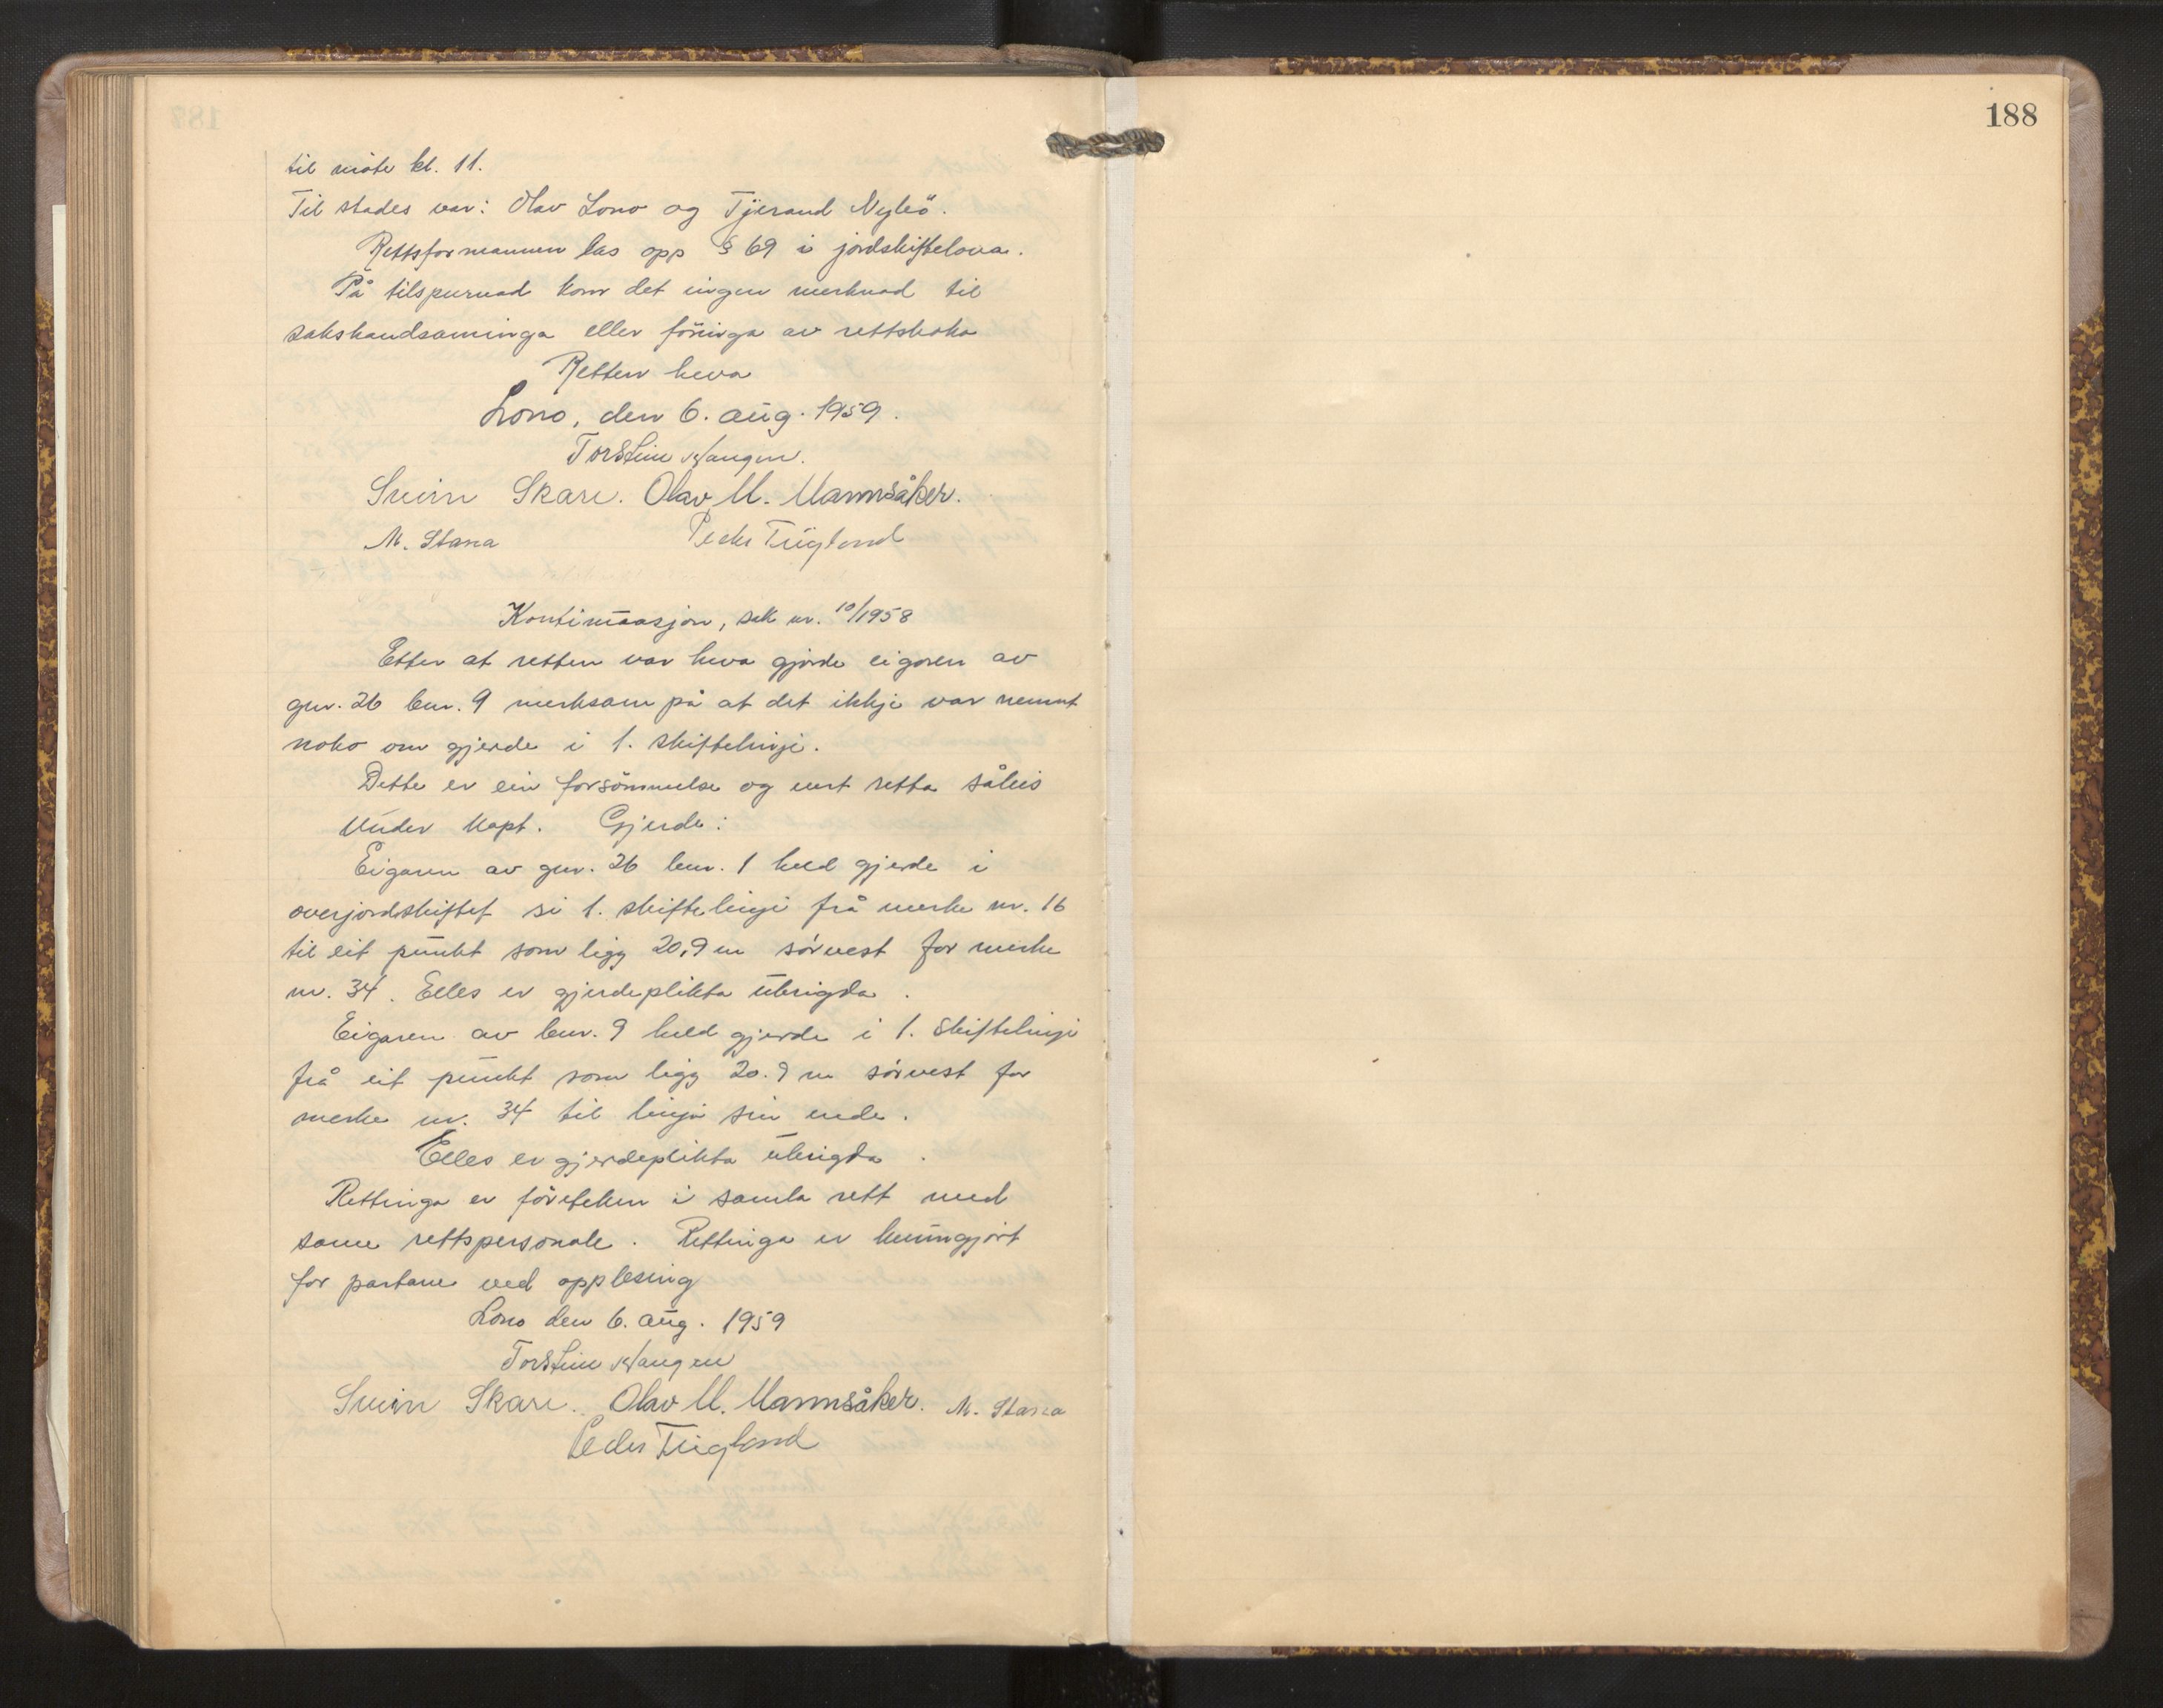 til møte kl. 11.
Til stades var: Olav Lono og Tjerand Nyleö.
Rettsformannen las opp § 69 i jordskiftelova.
På tilspurnad kom det ingen merknad til
sakshandsaminga eller föringa av rettsboka
Retten heva
Lono, den 6. aug. 1959.
Torstein Wangen.
Svein Skare. Olav M. Mannsåker.
M. Stana
Peder Tugland
Kontinuasjon, sak nr. 10/1958
Etter at retten var heva gjorde eigaren av
gnr. 26 bnr. 9 merksam på at det ikkje var nemnt
noko om gjerde i 1. skiftelinje.
Dette er ein forsömmelse og vert retta såleis
Under Kapt. Gjerde:
Eigaren av gnr. 26 bnr. 1 held gjerde i
overjordskiftet si 1. skiftelinje frå merke nr. 16
til eit punkt som ligg 20,9 m sörvest for merke
nr. 34. Elles er gjerdeplikta ubrigda.
Eigaren av bnr. 9 held gjerde i 1. skiftelinje
frå eit punkt som ligg 20.9 m sörvest for
merke nr. 34 til linja sin ende.
Elles er gjerdeplikta ubrigda.
Rettinga er företeken i samla rett med
same rettspersonale. Rettinga er kunngjort
for partane ved opplesing
Lono den 6. aug. 1959
Torstein Wangen
Svein Skare. Olav M. Mannsåker. M. Stana
Peder Tugland
188